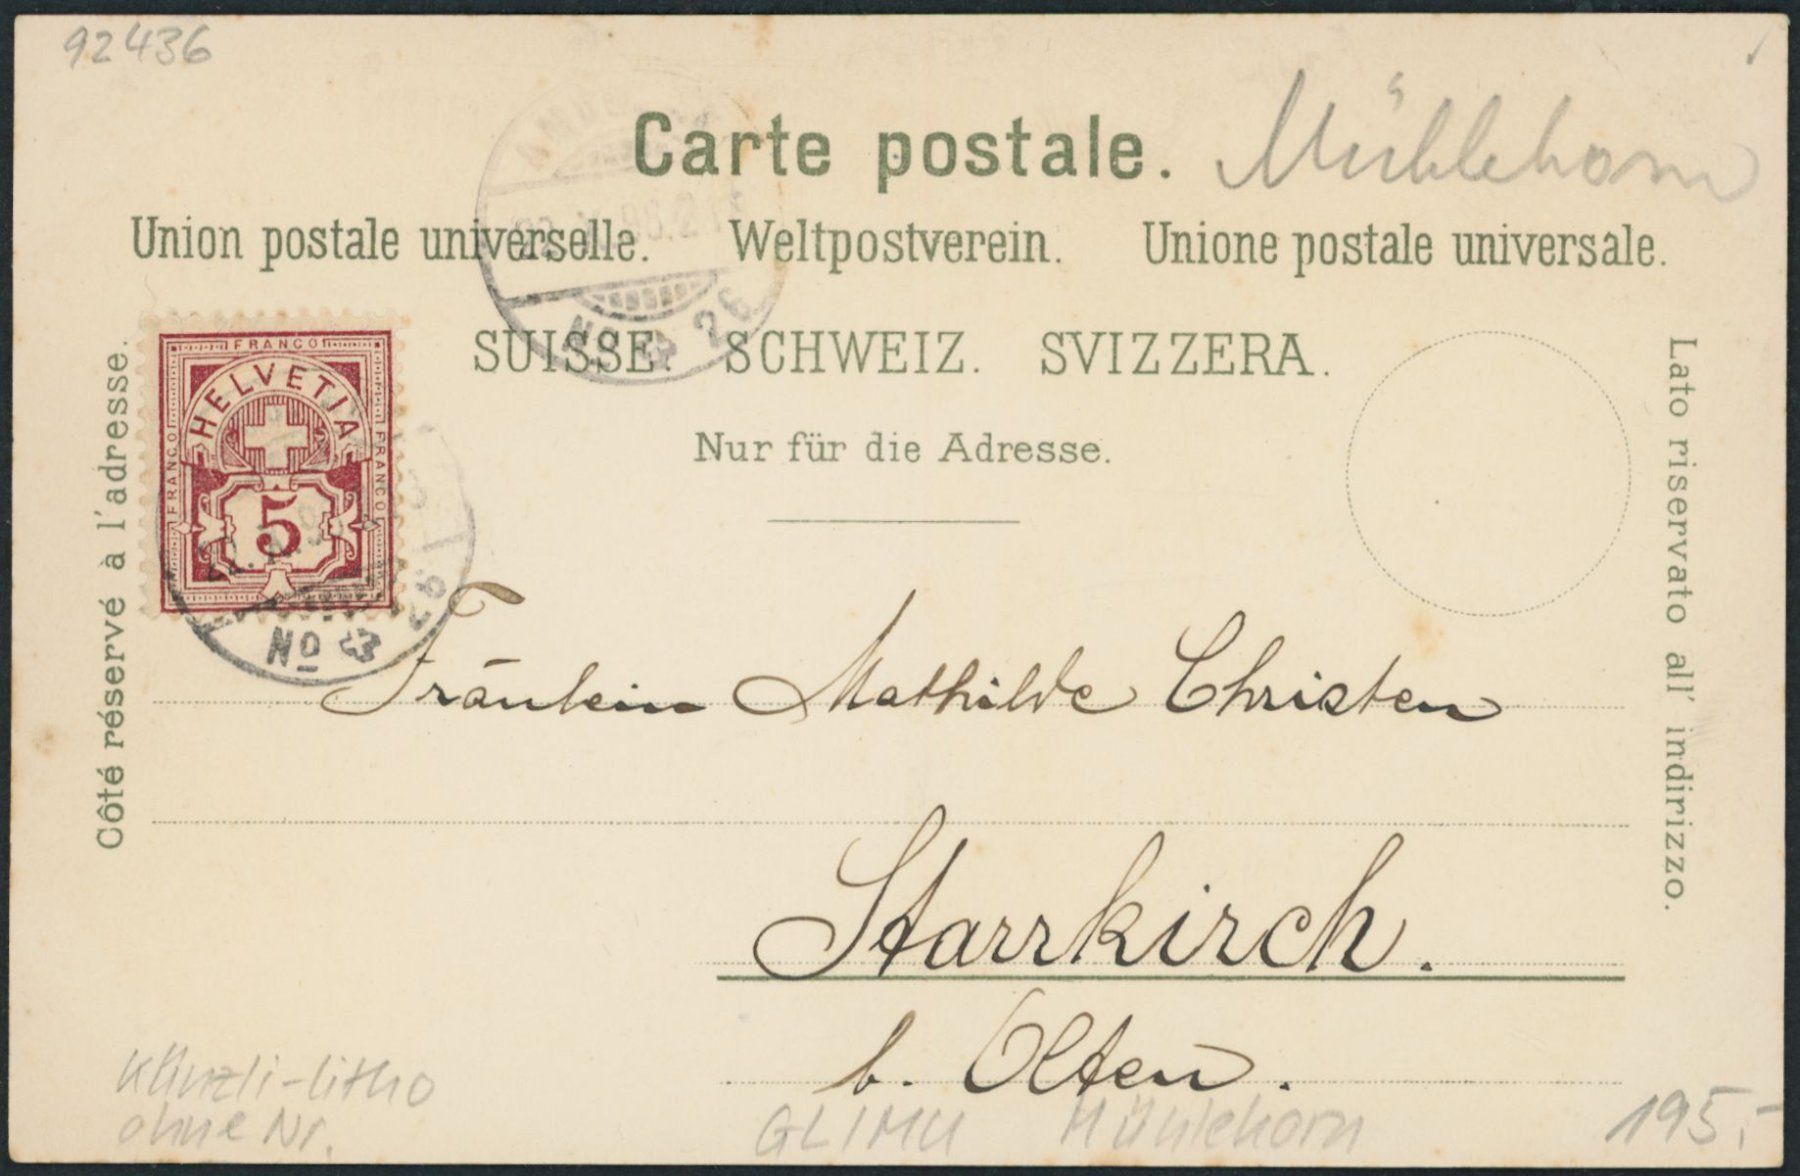 92436
Carte postale.
Mühlehorn
Union postale universelle. Weltpostverein. Unione postale universale.
SUISSE. SCHWEIZ. SVIZZERA.
Nur für die Adresse.
Côté réservé à l'adresse.
Lato riservato all' indirizzo.
FRANCO
FRANCO
FRANCO
HELVETIA
5
No 26
No 26
Fräulein Mathilde Christen
Starrkirch.
b. Olten.
Künzli-litho
ohne Nr.
GLIMU Mühlehorn
195.-